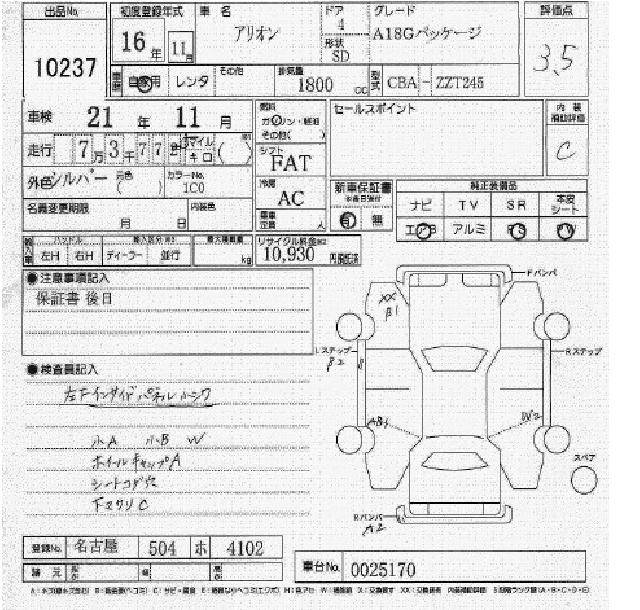 出品No. 初度登録年式 車名 ドア グレード 評価点
10237 16年 11月 アリオン 4 A18Gパッケージ 3.5
形状 SD
車歴 自家用 レンタ その他 排気量 1800 cc 型式 CBA - ZZT245
車検 21年 11月 燃料 ガソリン・軽油 その他( ) セールスポイント 内装補助評価
走行 7万3千77 マイル キロ ( ) シフト FAT C
外色 シルバー 元色 ( ) カラーNo. 1C0 冷房 AC 新車保証書 純正装備品
有 無 ナビ TV SR 本皮シート
名義変更期限 月 日 内装色 乗車定員 人 エアB アルミ PS PW
ハンドル 最大積載量 リサイクル料金
左H 右H ディーラー 並行 kg 10,930 円
●注意事項記入
保証書 後日
Fバンパ
XX
B1
Lステップ Rステップ
●検査員記入
左右インサイドパネル
小A 小B W
ホイールキャップA
シートコゲ穴
下マワリ C
W2
スペア
Rバンパ
A2
登録No. 名古屋 504 ホ 4102
諸元
車台No. 0025170